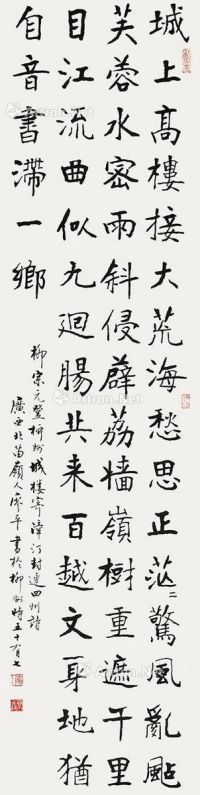 城上高樓接大荒海愁思正茫〻驚風亂颭
芙蓉水密雨斜侵薜荔墙嶺樹重遮千里
目江流曲似九迴腸共来百越文身地猶
自音書滯一鄉
柳宗元登柳州城樓寄漳汀封連四州詩
廣西北苗嶺人廖平書於柳州時五十有七